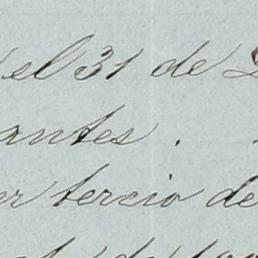 el 31 de
antes.
er tercio de